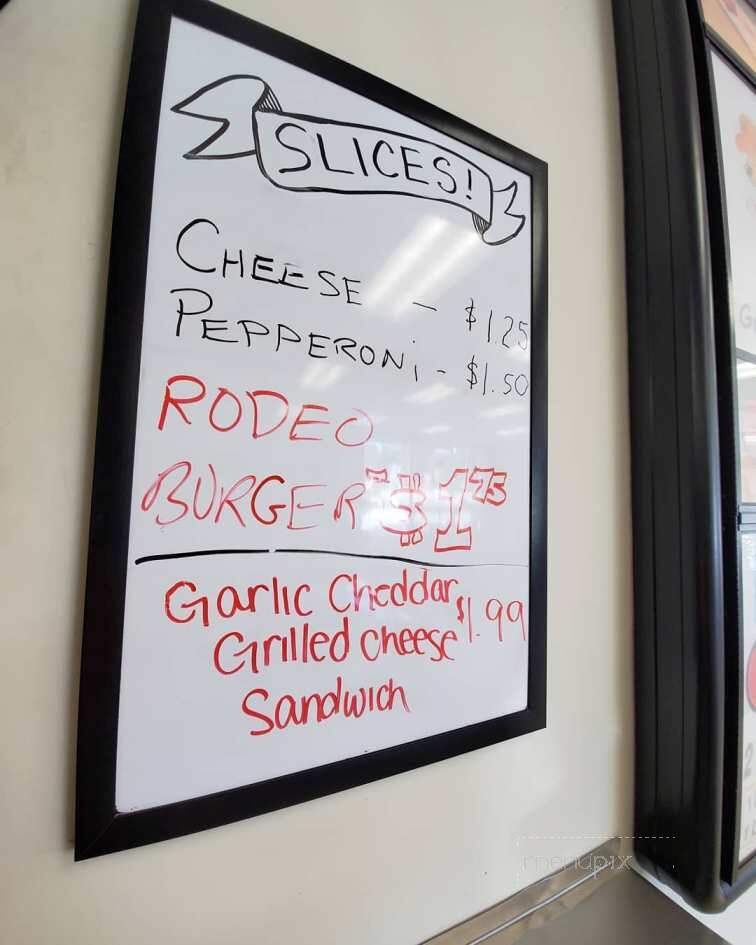 SLICES!
CHEESE - $1.25
PEPPERONi - $1.50
RODEO
BURGER - $1.75
Garlic Cheddar
Grilled cheese $1.99
Sandwich
menupix